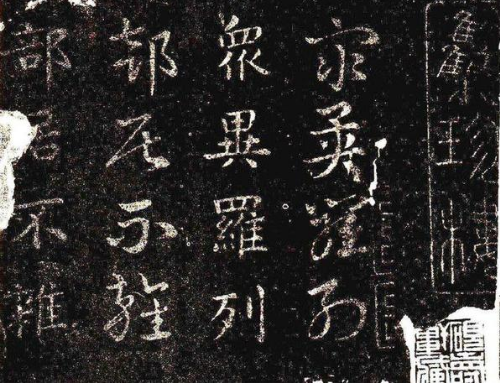 眾異羅列
眾異羅列
部居不雜
部居不雜